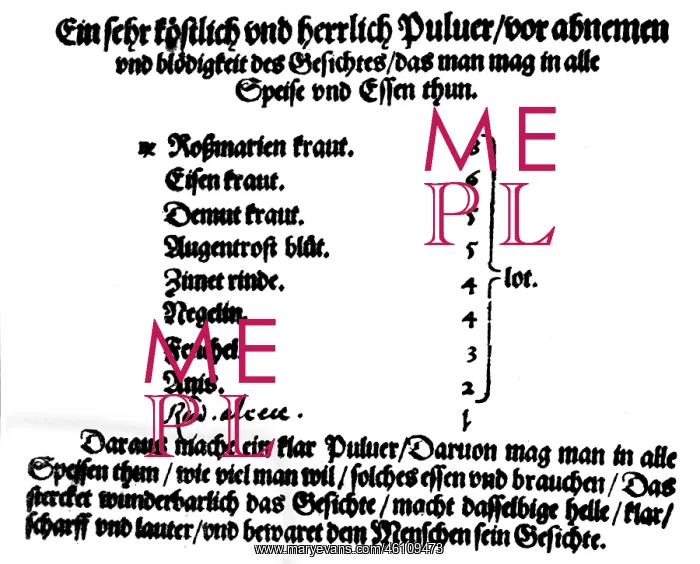 Ein sehr köstlich vnd herrlich Puluer/vor abnemen
vnd blödigkeit des Gesichtes/das man mag in alle
Speise vnd Essen thun.
Roßmarien kraut. 8
Eisen kraut. 6
Demut kraut. 5
Augentrost blüt. 5
Zimet rinde. 4
lot.
Negelin. 4
Fenchel. 3
Anis. 2
Daraus mache ein klar Puluer/Daruon mag man in alle
Speissen thun/wie viel man wil/solches essen vnd brauchen/Das
stercket wunderbarlich das Gesichte/macht dasselbige helle/klar/
scharff vnd lauter/vnd bewaret dem Menschen sein Gesichte.
ME
PL
ME
PL
www.maryevans.com/46109473